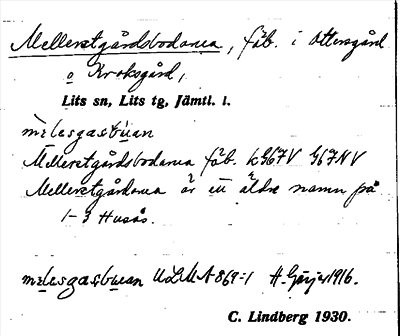 Melleretgårdsbodarna, fäb. i Ottersgård
o Kroksgård,
Lits sn, Lits tg, Jämtl. l.
melesgasbuan
Melleretgårdsbodarna fäb. kG67V G67NV
Melleretgårdarna är ett äldre namn på
1-3 Husås.
melesgasbuan ULMA 869:1 H. Geijer 1916.
C. Lindberg 1930.